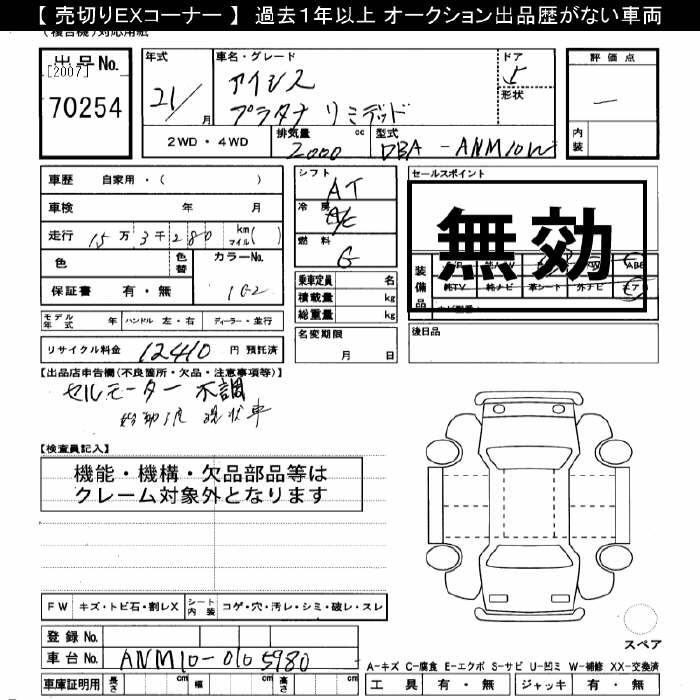 【 売切りEXコーナー 】 過去1年以上 オークション出品歴がない車両
(複合機)対応用紙
出品No.
[2007]
70254
年式
21/
月
車名・グレード
アイシス
プラタナ リミテッド
ドア
5
形状
評価点
—
内装
2WD・4WD
排気量 cc
2000
型式
DBA - ANM10W
車歴 自家用・( )
車検 年 月
走行 15万3千280 km マイル( )
色
色替
カラーNo.
1G2
保証書 有・無
シフト
AT
冷房
A/C
燃料
G
乗車定員 名
積載量 kg
総重量 kg
セールスポイント
無効
装備品
純TV 純ナビ 革シート 外ナビ
モデル年式 年 ハンドル 左・右 ディーラー・並行
名変期限
月 日
後日品
リサイクル料金 12410 円 預託済
【出品店申告欄(不良箇所・欠品・注意事項等)】
セルモーター 不調
現状車
【検査員記入】
機能・機構・欠品部品等は
クレーム対象外となります
FW キズ・トビ石・割レX シート内装 コゲ・穴・汚レ・シミ・破レ・スレ
登録No.
車台No. ANM10-0105980
車庫証明用 長さ cm 幅 cm 高さ cm
スペア
A-キズ C-腐食 E-エクボ S-サビ U-凹ミ W-補修 XX-交換済
工具 有・無 ジャッキ 有・無